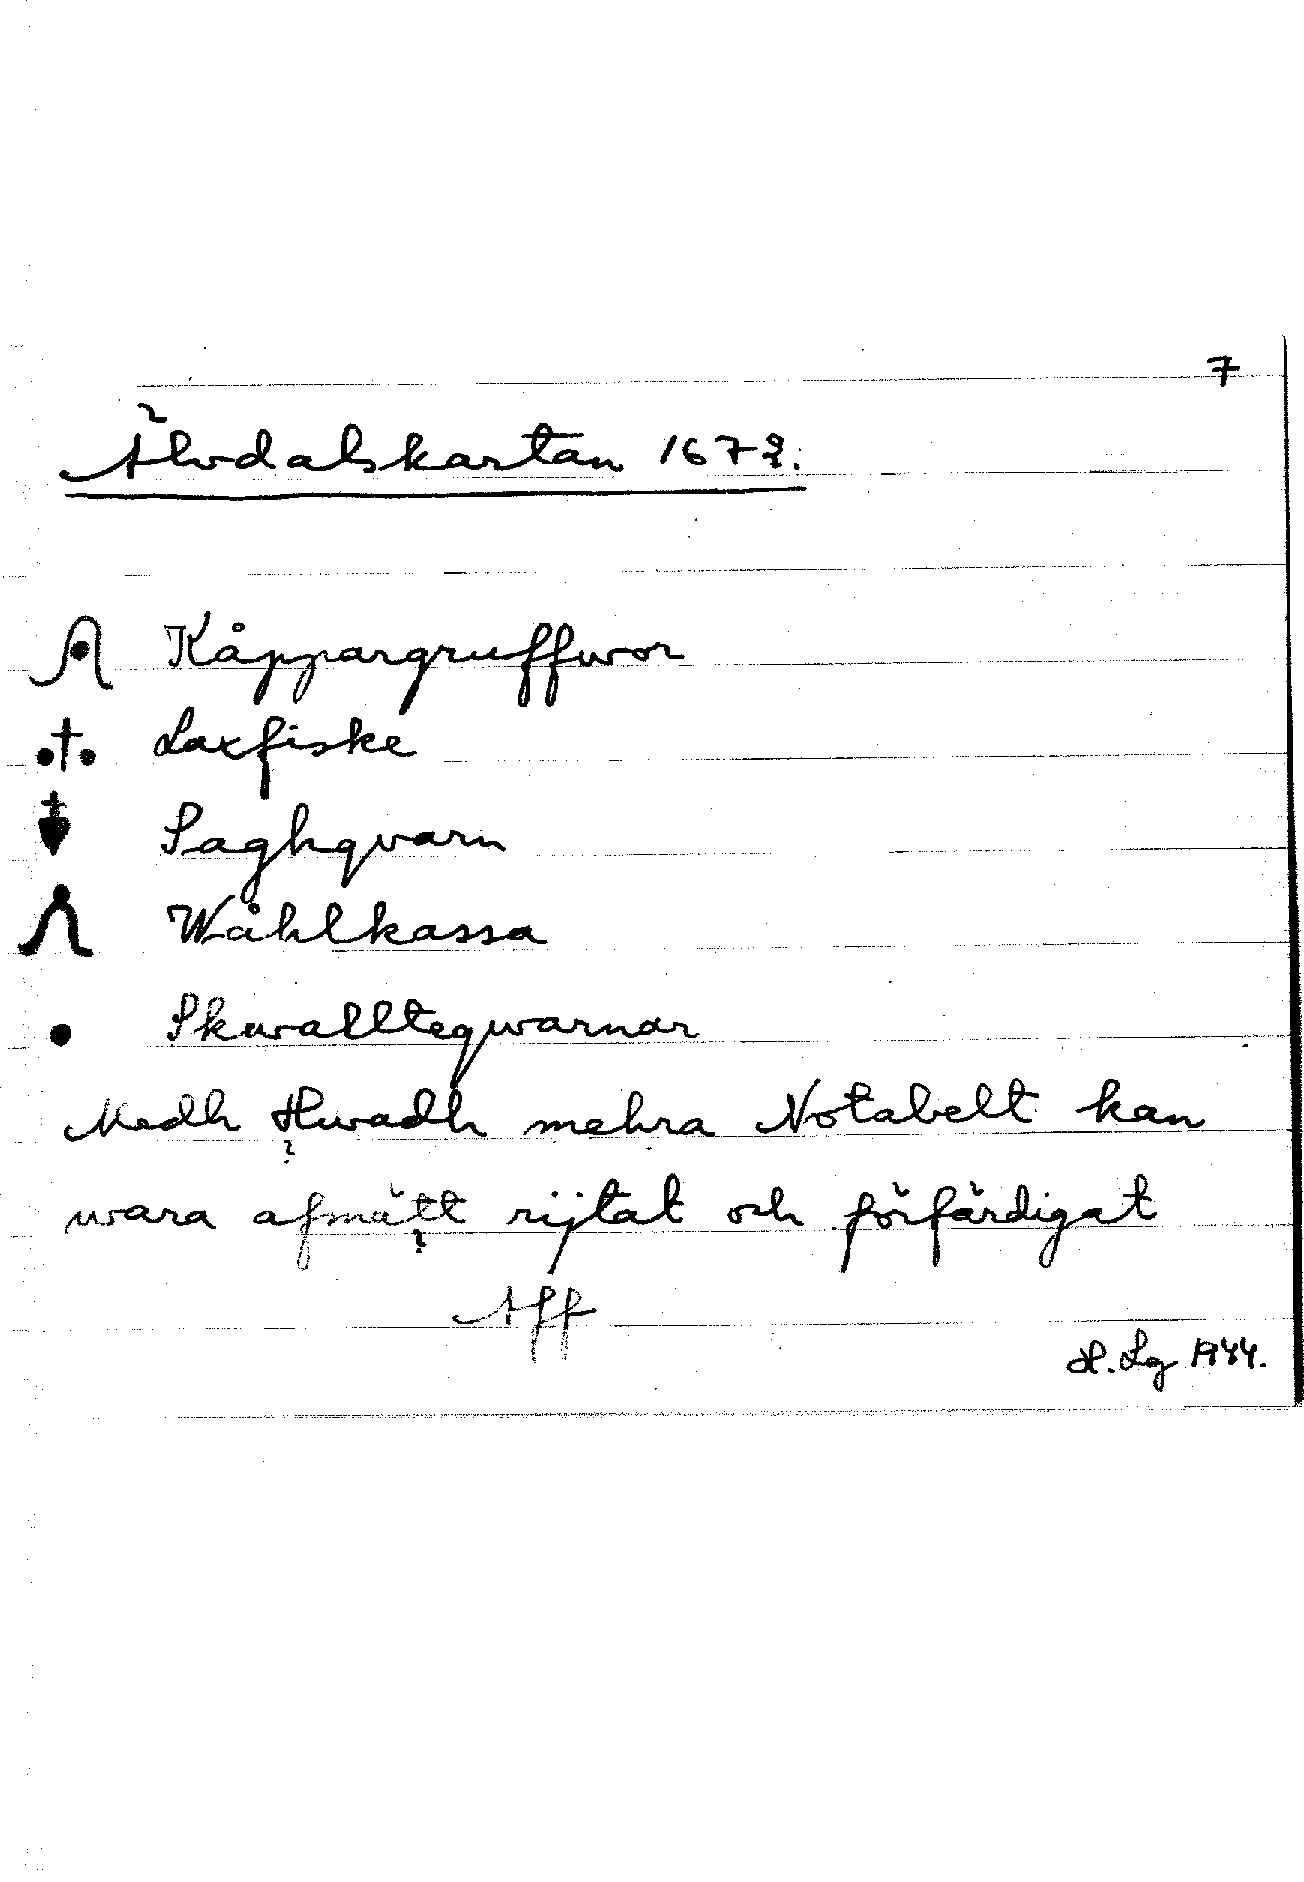 7
Älvdalskartan 1672.
Kåppargruffwor
Laxfiske
Saghqvarn
Wåhlkassa
Skwallteqwarnar
Medh Hwadh mehra Notabelt kan
?
wara afmätt rijtat och förfärdigat
?
Aff
H. Lg 1944.